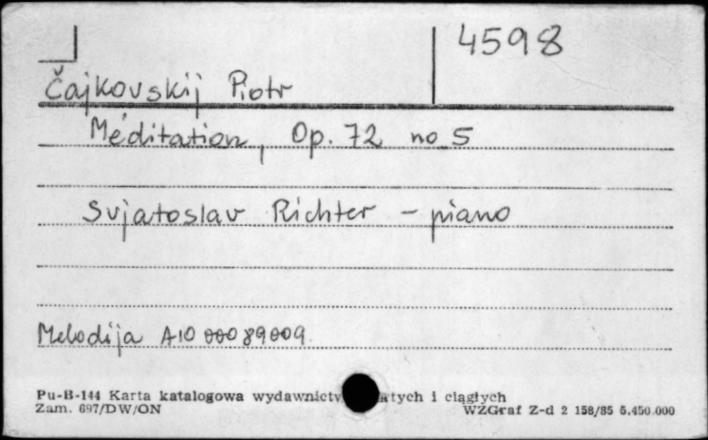 4598
Čajkovskij Piotr
Méditation, Op. 72 no 5
Svjatoslav Richter – piano
Melodija A10 00089009
Pu-B-144 Karta katalogowa wydawnictw i ciągłych
Zam. 697/DW/ON WZGraf Z-d 2 158/85 5.450.000